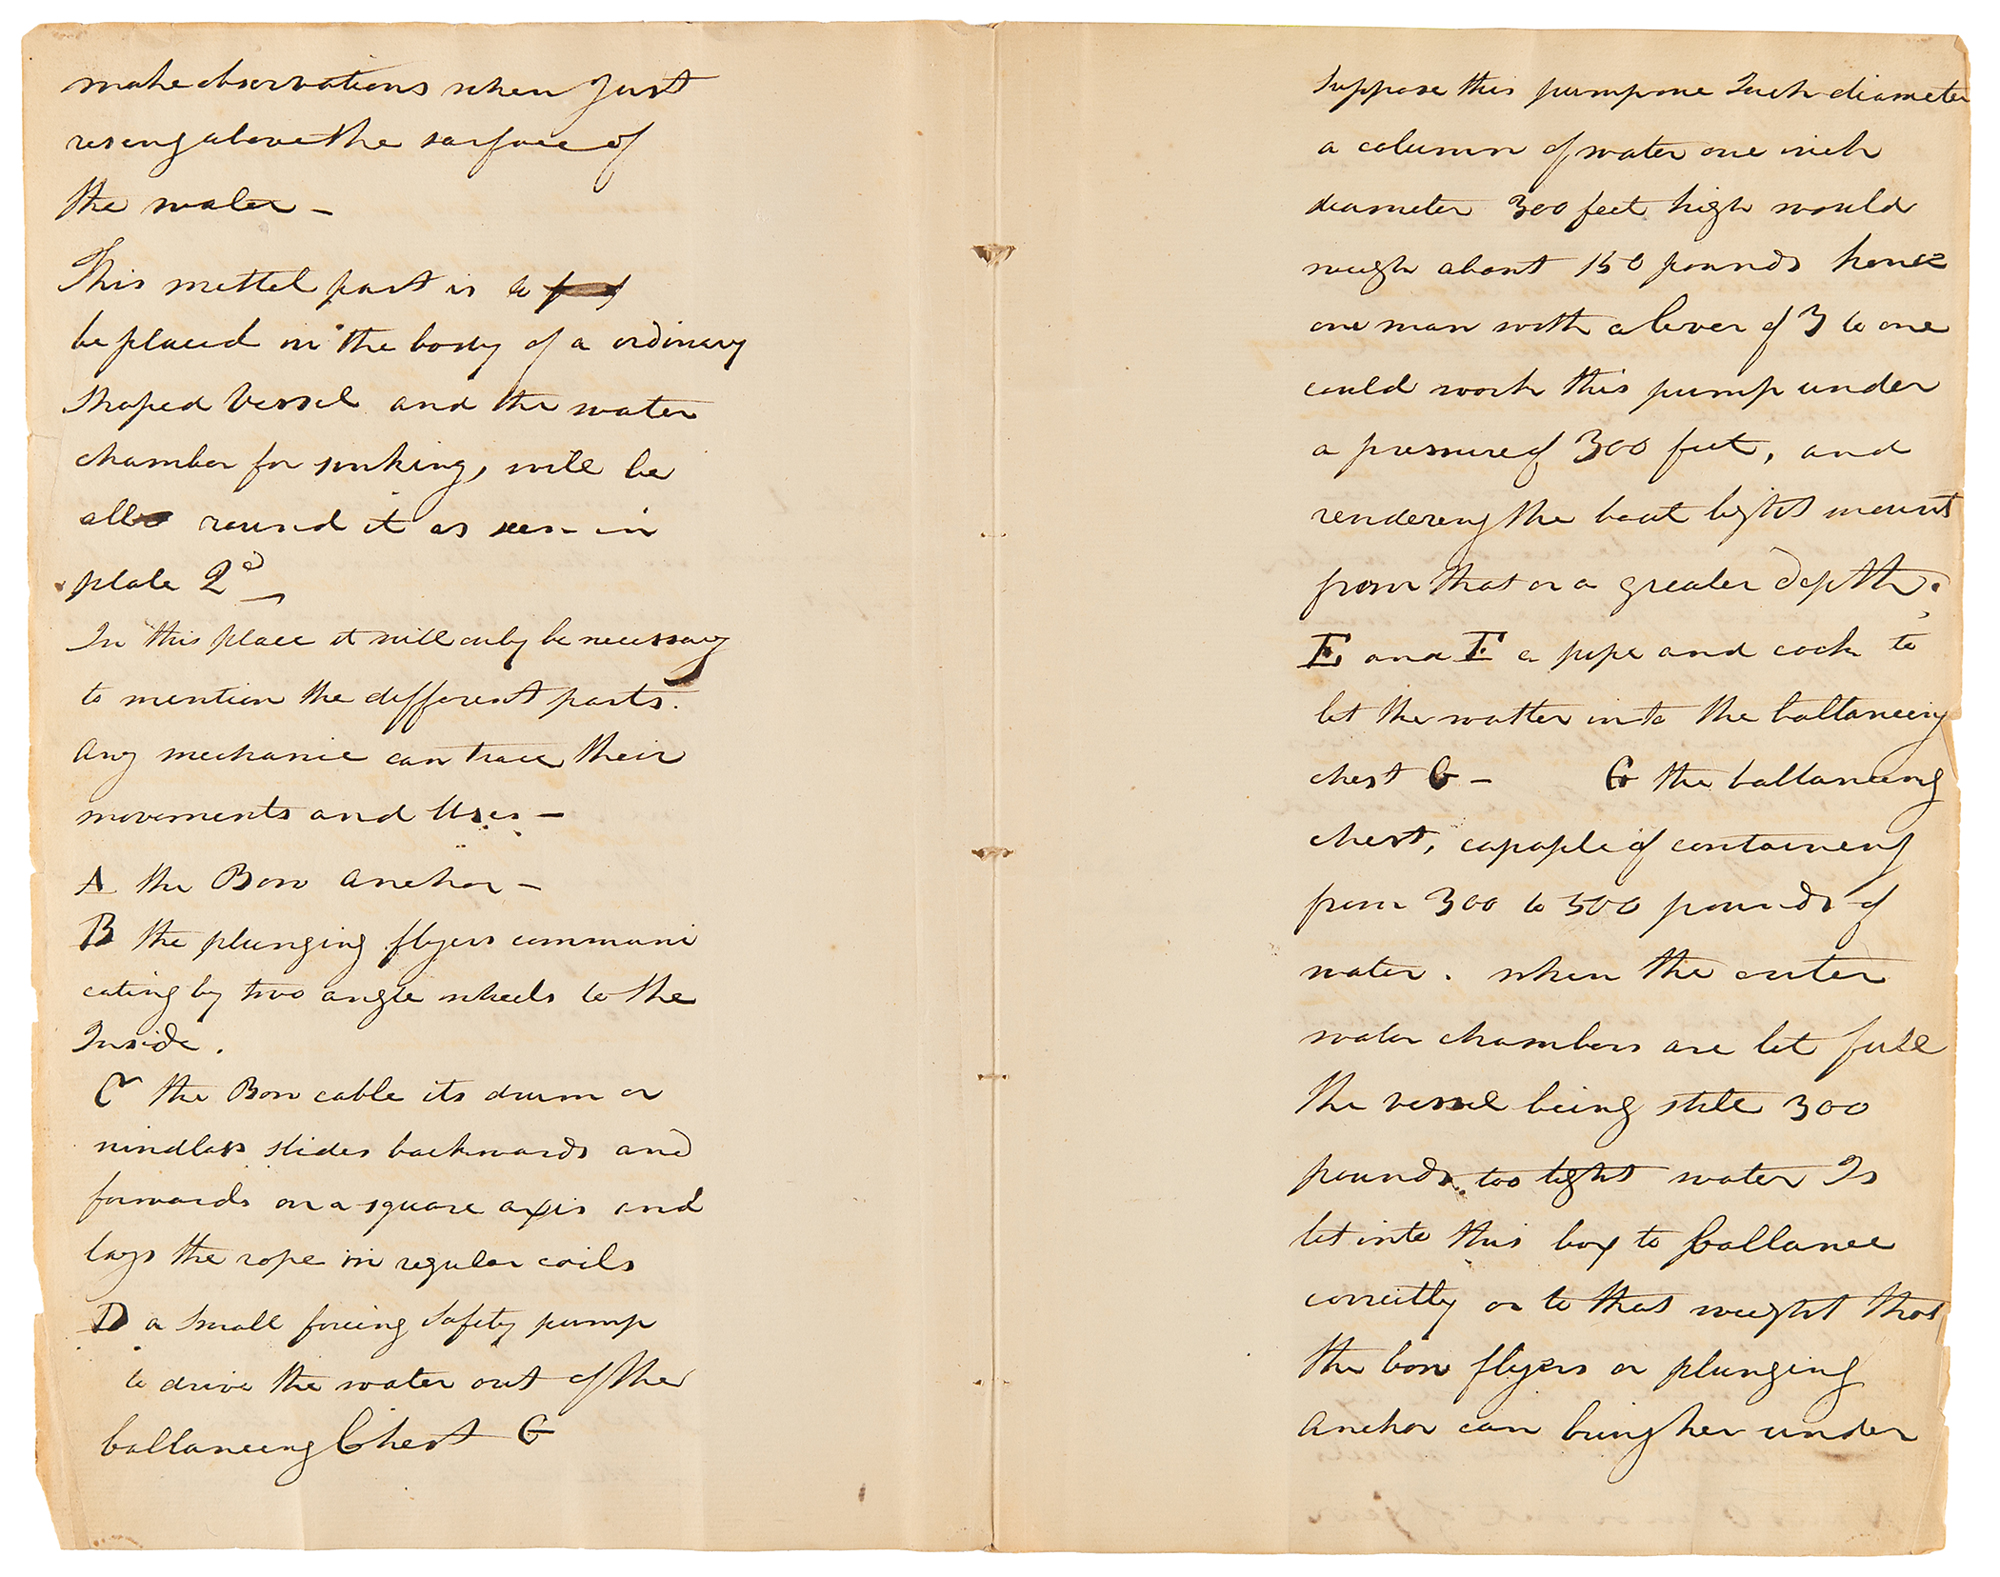 make observations when Just
riseing above the surface of
the water –
This mettel part is to
be placed in the body of a ordinary
Shaped Vessel and the water
chamber for sinking, will be
all round it as seen in
plate 2d –
In this place it will only be necessary
to mention the different parts.
Any mechanic can trace their
movements and Uses –
A the Bow anchor –
B the plunging flyers communi
cating by two angle wheels to the
Inside.
C the Bow cable its drum or
windlass slides backwards and
forwards on a square axis and
lays the rope in regular coils
D a Small forcing Safety pump
to drive the water out of the
ballanceing Chest G
Suppose this pump one Inch diameter
a column of water one inch
diameter 300 feet high would
weigh about 150 pounds hence
one man with a lever of 3 to one
could work this pump under
a pressure of 300 feet, and
rendering the boat light mount
from that or a greater depth.
E and F a pipe and cock to
let the watter into the ballanceing
chest G – G the ballanceing
chest, capaple of containeng
from 300 to 500 pounds of
water. when the outer
water chambers are let full
the vessel being still 300
pounds too light water Is
let into this box to ballance
correctly or to that weight that
the bow flyers or plunging
Anchor can bring her under